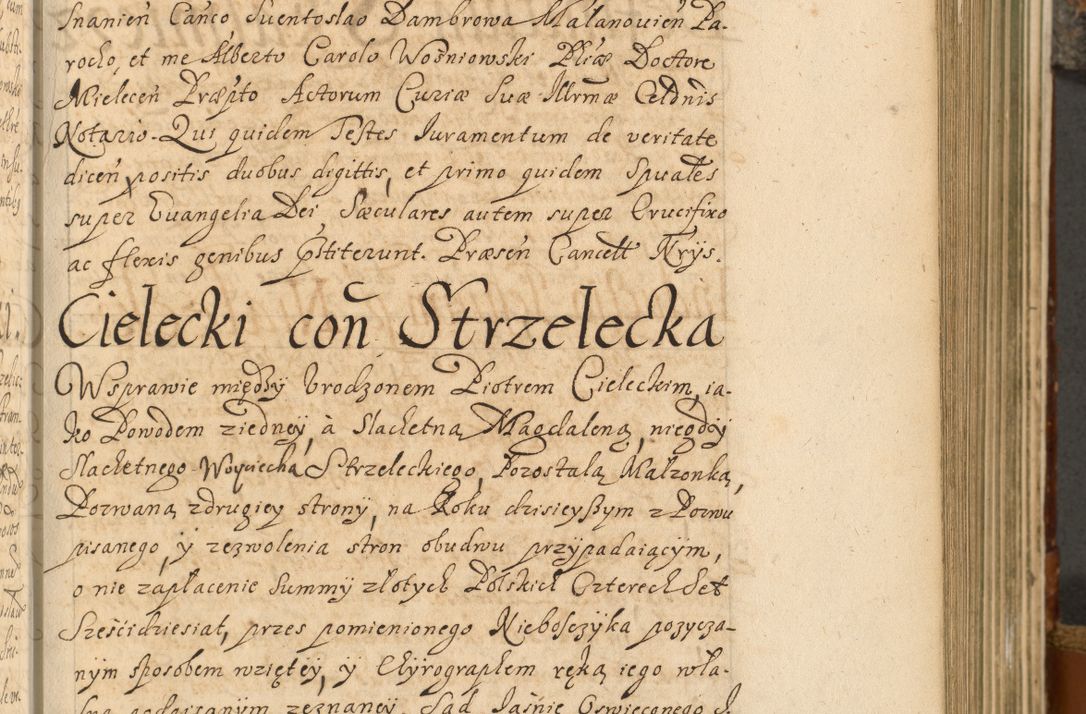 Snanień Canco Suentoslao Dambrowa Malanowień Pa-
rocho, et me Alberto Carolo Wośniowski Phiæ Doctore
Mieleceń Præpto Actorum Curiæ Suæ Illrmæ Celdnis
Notario. Qui quidem Testes Iuramentum de veritate
diceń positis duobus digittis, et primo quidem Spuales
super Euangelia Dei Sæculares autem super Crucifixo
ac flexis genibus pstiterunt. Præseń Cancell Nrys.
Cielecki con Strzelecka
Wsprawie między Vrodzonem Piotrem Cieleckim, ia-
ko Powodem ziedney, à Slachetną Magdaleną, niegdy
Slachetnego Woyciecha Strzeleckiego, Pozostałą Małzonką,
Pozwaną zdrugiey strony, na Roku dzisieyßym z Pozwu
pisanego, y zezwolenia stron obudwu przypadaiącym,
o nie zapłacenie Summy złotych Polskich Czterech Set
Sześcidziesiąt, przes pomienionego Nieboszczyka pozycza-
nym sposobem wziętey, y Chyrographem ręką iego wła-
sną podpisanym zeznaney, Sąd Jaśnie Oswieconego J.